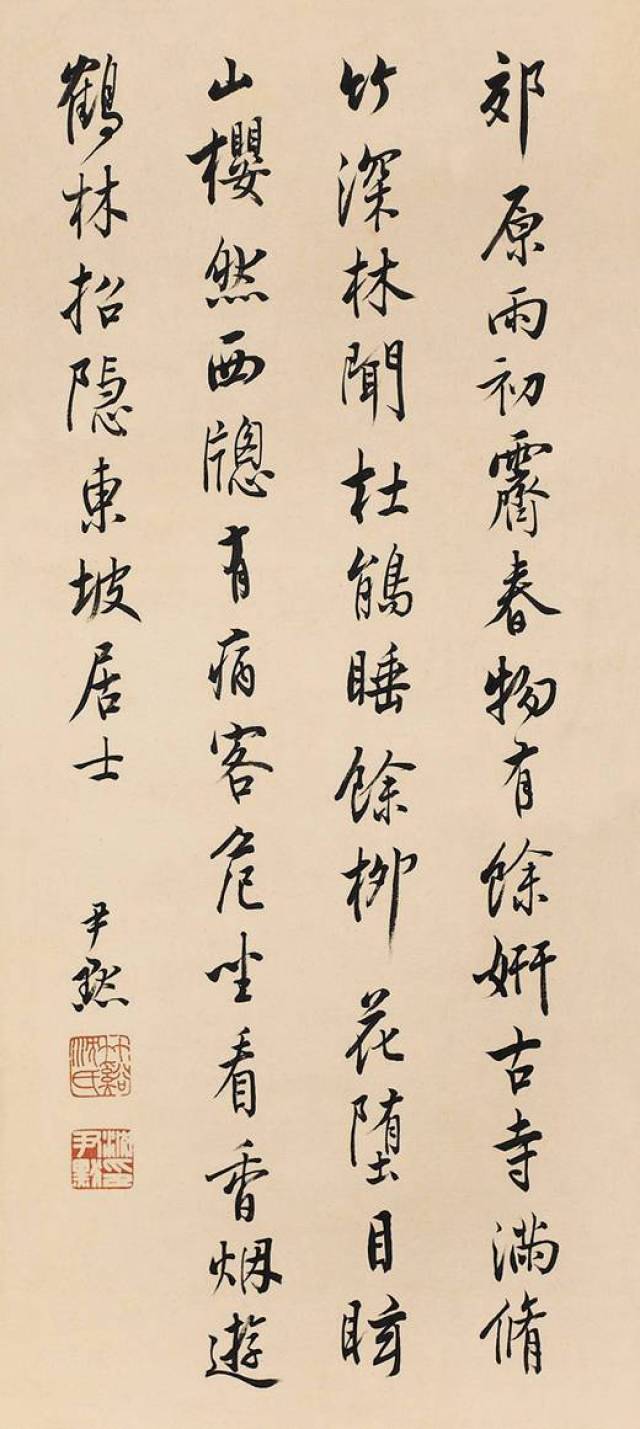 郊原雨初霽春物有餘妍古寺滿脩
竹深林聞杜鵑睡餘柳花堕目眩
山櫻然西牕有病客危坐看香烟遊
鶴林招隐東坡居士
尹默
竹谿沈氏
沈印尹默